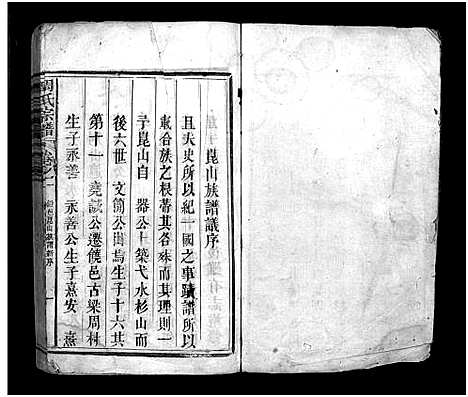 崑山族譜議序
且夫史所以紀一國之事蹟譜所以
載合族之根蒂其各殊而其理則一
予崑山自 器公卜築弋水杉山而
後六世 文簡公出焉生子十六其
第十一 堯誠公遷饒邑古梁周村
生子永善 永善公生子熹安 熹
周氏宗譜